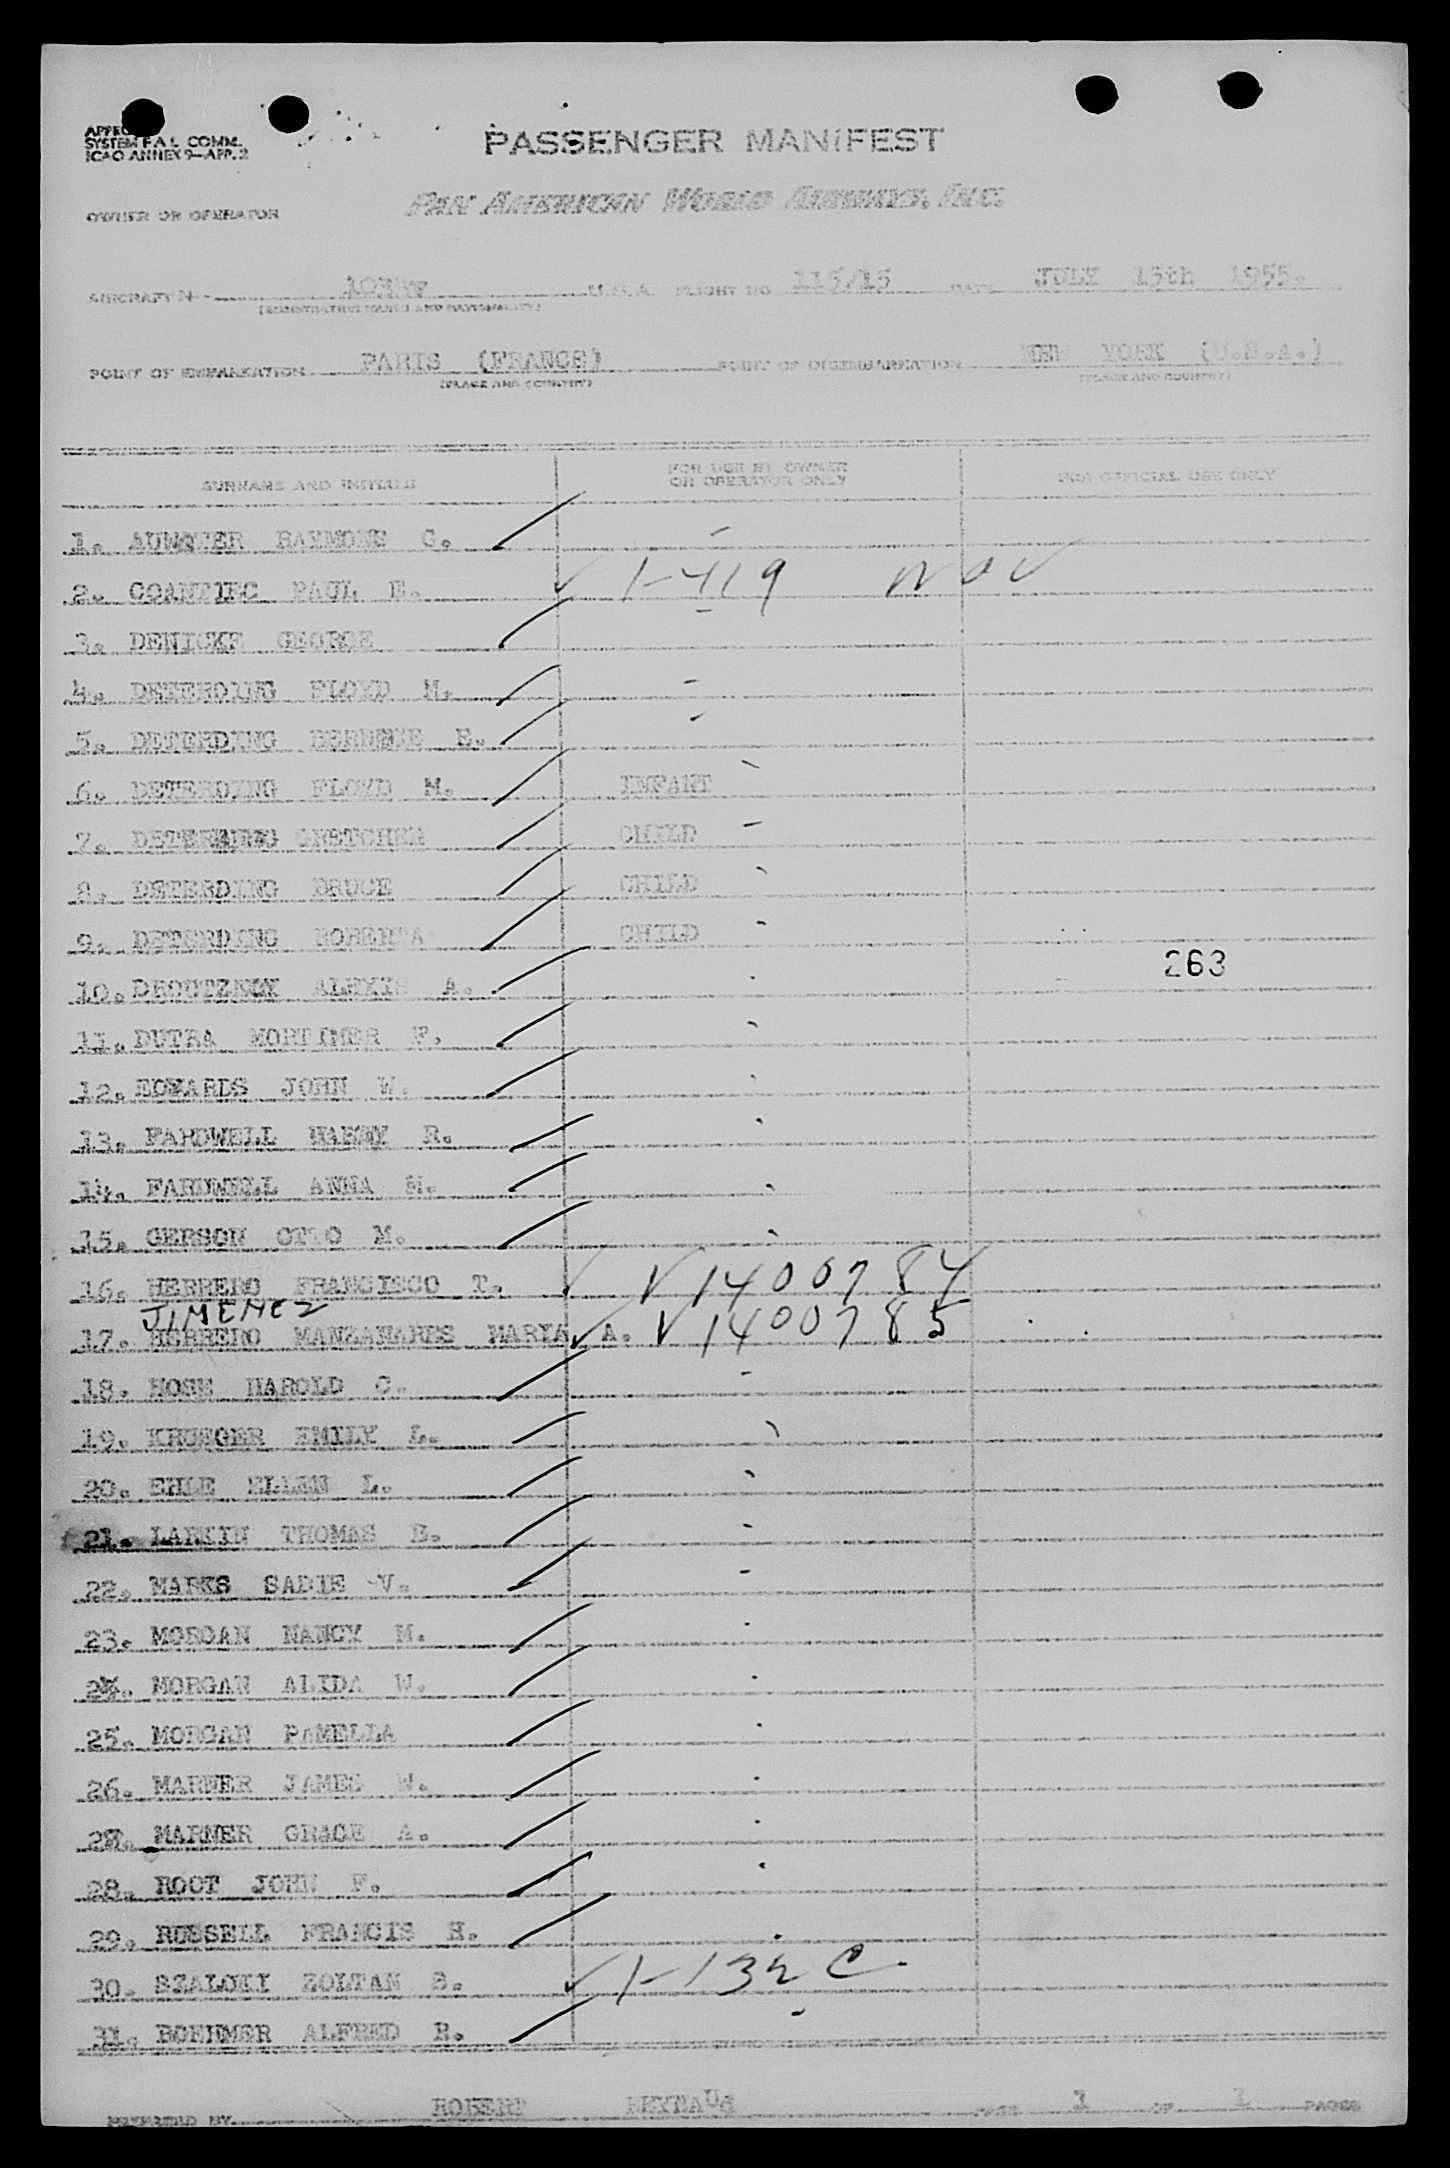 SYSTEM F.A.L. COMM.
ICAO ANNEX 9—APP. 2
PASSENGER MANIFEST
OWNER OR OPERATOR
PAN AMERICAN WORLD AIRWAYS, INC.
AIRCRAFT N- U.S.A. FLIGHT NO 115/15 DATE JULY 15th 1955.
(REGISTRATION MARKS AND NATIONALITY)
POINT OF EMBARKATION PARIS (FRANCE) POINT OF DISEMBARKATION NEW YORK (U.S.A.)
(PLACE AND COUNTRY) (PLACE AND COUNTRY)
SURNAME AND INITIALS FOR USE BY OWNER OR OPERATOR ONLY FOR OFFICIAL USE ONLY
1. RAYMOND C.
2. PAUL E. 1-419
3. DENICKE GEORGE
4. DETERDING FLOYD M.
5. DETERDING E.
6. DETERDING FLOYD M. INFANT
7. DETERDING GRETCHEN CHILD
8. DETERDING BRUCE CHILD
9. DETERDING ROBERTA CHILD
263
10. ALEXIS A.
11. DUTRA MORTIMER F.
12. EDWARDS JOHN W.
13. FARDWELL HARRY R.
14. FARDWELL ANNA M.
15. GERSON OTTO M.
16. HERRERO FRANCISCO T. V1400784
JIMENEZ
17. HERRERO MANZANARES MARIA A. V1400785
18. HOSE HAROLD C.
19. KRUEGER EMILY L.
20. EHLE ELLEN L.
21. LARKIN THOMAS E.
22. MARKS SADIE V.
23. MORGAN NANCY M.
24. MORGAN ALIDA W.
25. MORGAN PAMELLA
26. MARNER JAMES W.
27. MARNER GRACE A.
28. ROOT JOHN F.
29. RUSSELL FRANCIS H.
30. ZOLTAN S.
31. BOEHMER ALFRED R.
PREPARED BY ROBERT PAGE 1 OF 1 PAGES